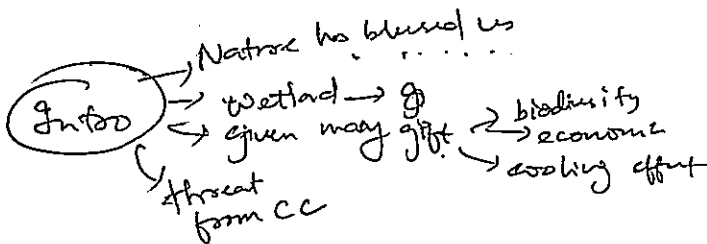 Nature has blessed us . . . . . .
Intro
wetland →
given many gift
biodiversity
economic
cooling effect
threat
from CC